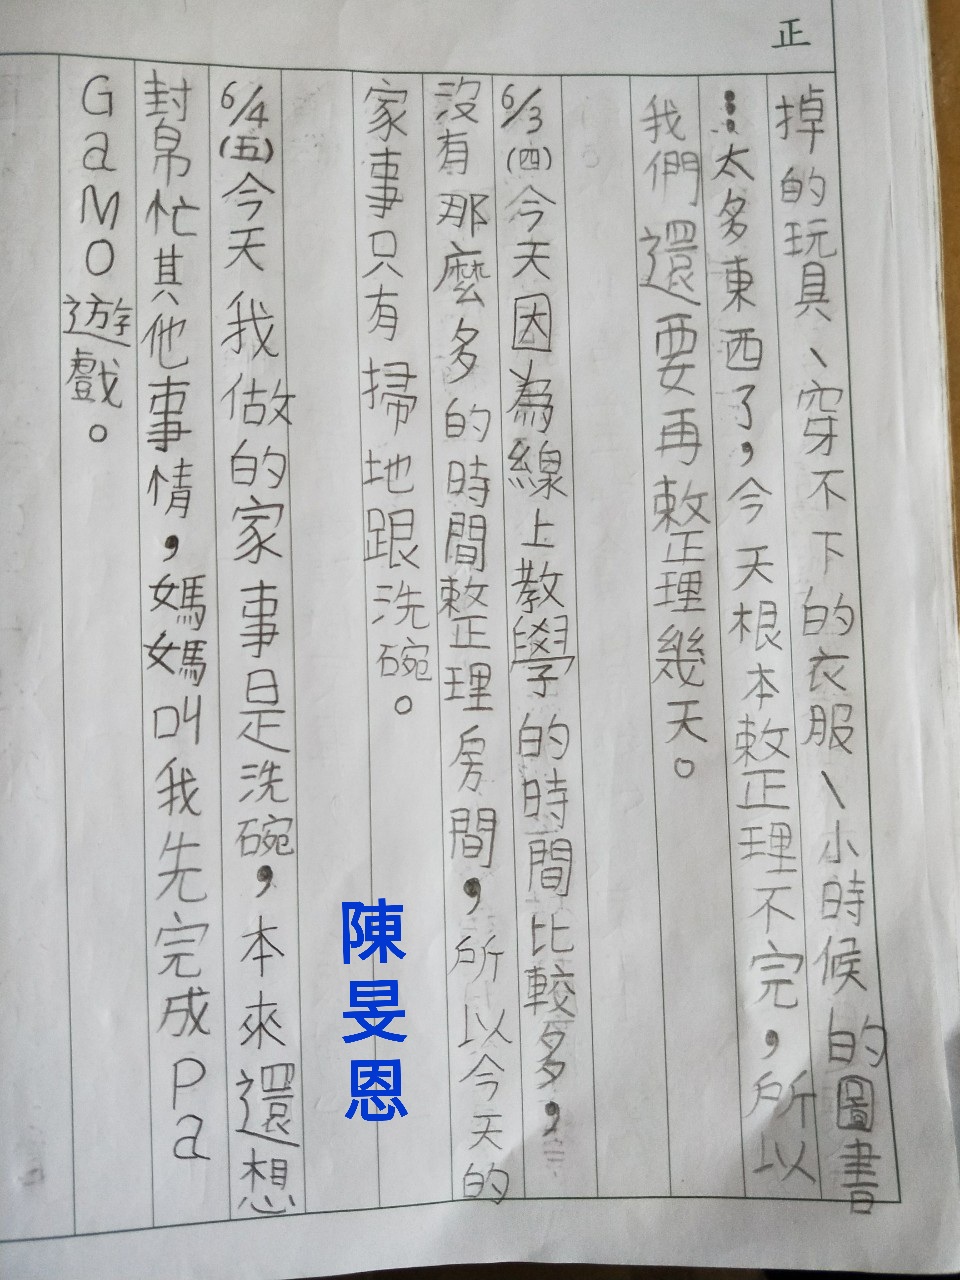 正
掉的玩具、穿不下的衣服、小時候的圖書
…太多東西了，今天根本整理不完，所以
我們還要再整理幾天。
6/3(四)今天因為線上教學的時間比較多，
沒有那麼多的時間整理房間，所以今天的
家事只有掃地跟洗碗。
6/4(五)今天我做的家事是洗碗，本來還想
封帛忙其他事情，媽媽叫我先完成Pa
GaMO遊戲。
陳旻恩